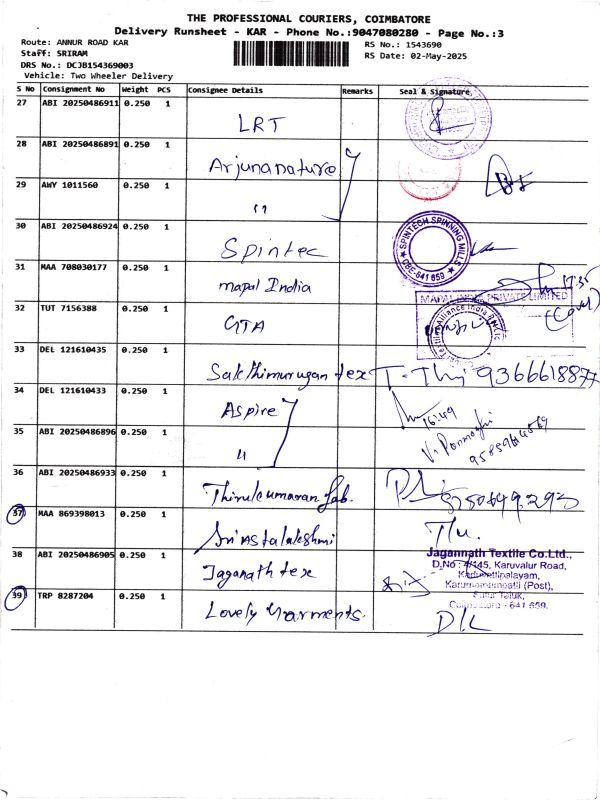 THE PROFESSIONAL COURIERS, COIMBATORE
Delivery Runsheet - KAR - Phone No.:9047080280 - Page No.:3
Route: ANNUR ROAD KAR
Staff: SRIRAM
DRS No.: DCJB154369003
Vehicle: Two Wheeler Delivery
RS No.: 1543690
RS Date: 02-May-2025
S No Consignment No Weight PCS Consignee Details Remarks Seal & Signature
27 ABI 20250486911 0.250 1
LRT
28 ABI 20250486891 0.250 1
Arjunanature
29 AWY 1011560 0.250 1
"
30 ABI 20250486924 0.250 1
Spintec
SPINTECH SPINNING MILLS
CBE-641 659
31 MAA 708030177 0.250 1
mapal India
17.35
MAPAL INDIA PRIVATE LIMITED
(Cover)
32 TUT 7156388 0.250 1
GTA
33 DEL 121610435 0.250 1
Sakthimurugan tex T. Thy 9366618877
34 DEL 121610433 0.250 1
Aspire
16:49
35 ABI 20250486896 0.250 1
"
V. Ponmozhi
36 ABI 20250486933 0.250 1
Thirukumaran fab.
37 MAA 869398013 0.250 1
Sri Astalakshmi
38 ABI 20250486905 0.250 1
Jaganath tex
Jagannath Textile Co.Ltd.,
D.No : 4/145, Karuvalur Road,
(Post),
Sulur Taluk,
Coimbatore - 641 659.
39 TRP 8287204 0.250 1
Lovely Garments.